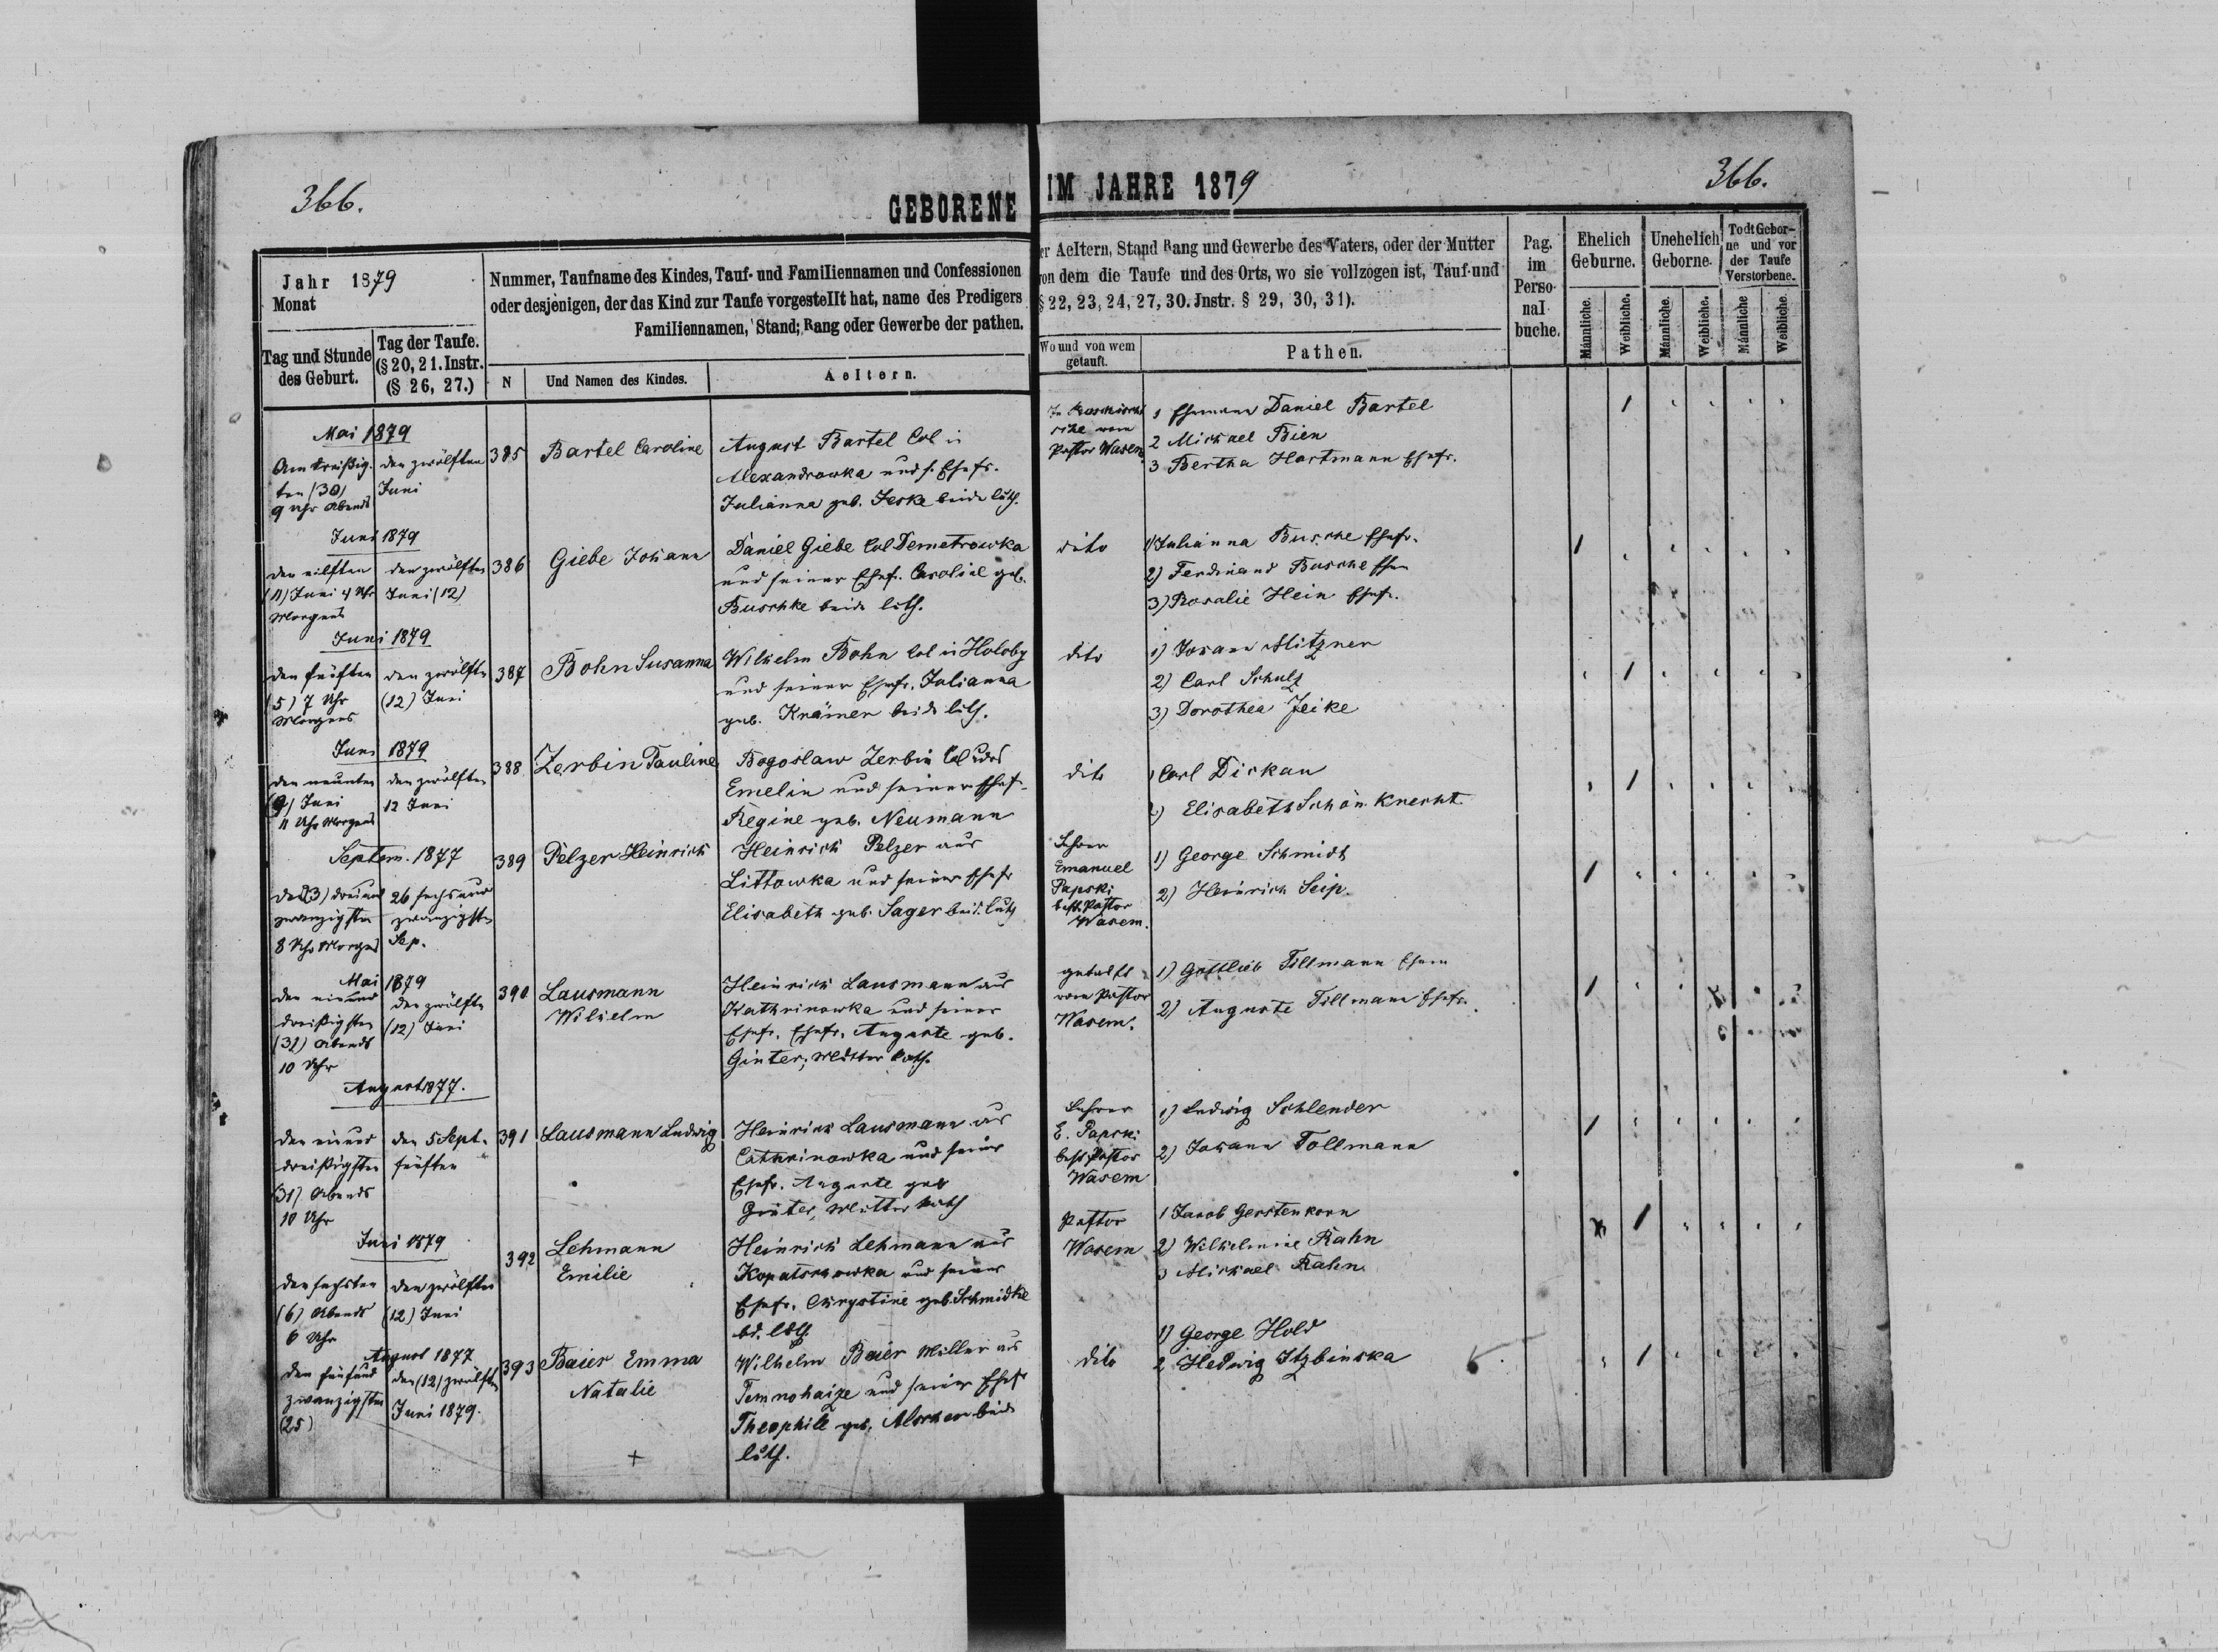 366.
GEBORENE
IM JAHRE 1879
366.
Jahr 1879
Monat
Tag und Stunde
des Geburt.
Tag der Taufe.
(§ 20, 21. Instr.
(§ 26, 27.)
Nummer, Taufname des Kindes, Tauf- und Familiennamen und Confessionen
oder desjenigen, der das Kind zur Taufe vorgestellt hat, name des Predigers
Familiennamen, Stand; Rang oder Gewerbe der pathen.
N
Und Namen des Kindes.
Aeltern.
er Aeltern, Stand Rang und Gewerbe des Vaters, oder der Mutter
von dem die Taufe und des Orts, wo sie vollzogen ist, Tauf-und
§ 22, 23, 24, 27, 30. Jnstr. § 29, 30, 31).
Wo und von wem
getauft.
Pathen.
Pag.
im
Perso-
nal-
buche.
Ehelich
Geburne.
Unehelich
Geborne.
Todt Gebor-
ne und vor
der Taufe
Verstorbene.
Männliche.
Weibliche.
Männliche.
Weibliche.
Männliche
Weibliche.
Mai 1879
Am dreißig-
ten (30)
9 Uhr Abends
den zwölften
Juni
385
Bartel Caroline
August Bartel Col in
Alexandrowka und s. Ehefr.
Julianna geb. Jeske beide luth.
Pastor Wasem
1 Ehemann Daniel Bartel
2 Michael Bien
3 Bertha Hartmann Ehefr.
Juni 1879
den eilften
(11) Juni 4 Uhr
Morgens
den zwölften
Juni (12)
386
Giebe Johann
Daniel Giebe Col Demetrowka
und seiner Ehef. Caroline geb.
Buschke beide luth.
dito
1) Julianna Buschke Ehefr.
2) Ferdinand Buschke Ehm
3) Rosalie Hein Ehefr.
Juni 1879
den fünften
(5) 7 Uhr
Morgens
den zwölften
(12) Juni
387
Bohn Susanna
Wilhelm Bohn Col in Holoby
und seiner Ehefr. Julianna
geb. Krämer beide luth.
dito
1) Johann Mitzner
2) Carl Schulz
3) Dorothea Jeike
Juni 1879
den neunten
(9) Juni
11 Uhr Morgens
den zwölften
12 Juni
388
Zerbin Pauline
Bogoslaw Zerbin Col
Emelin und seiner Ehefr.
Regine geb. Neumann
dito
1 Carl Dickau
2) Elisabeth Schönknecht
Septem. 1877
den (23) drei und
zwanzigsten
8 Uhr Morgens
26 sechs und
zwanzigsten
Sep.
389
Pelzer Heinrich
Heinrich Pelzer aus
Littowka und seiner Ehefr
Elisabeth geb. Sager beide luth
Lehrer
Emanuel
Papski
best. Pastor
Wasem.
1) George Schmidt
2) Heinrich Seip.
Mai 1879
den ein und
dreißigsten
(31) Abends
10 Uhr
den zwölften
(12) Juni
390
Lausmann
Wilhelm
Heinrich Lausmann aus
Kathrinowka und seiner
Ehefr. Ehefr. Auguste geb.
Ginter, Mutter kath.
getauft
vom Pastor
Wasem.
1) Gottlieb Tillmann Ehem
2) Auguste Tillmann Ehefr.
August 1877.
den ein und
dreißigsten
(31) Abends
10 Uhr
den 5 Sept.
fünften
391
Lausmann Ludwig
Heinrich Lausmann aus
Cathrinowka und seiner
Ehefr. Auguste geb
Ginter, Mutter kath
Lehrer
E. Papski
best. Pastor
Wasem
1) Ludwig Schlender
2) Johann Tollmann
Juni 1879
den sechsten
(6) Abends
6 Uhr
den zwölften
(12) Juni
392
Lehmann
Emilie
Heinrich Lehmann aus
Kopatschowka und seiner
Ehefr. Chrystine geb. Schmidke
bd. luth.
Pastor
Wasem
1 Jacob Gerstenkorn
2) Wilhelmine Rahn
3 Michael Rahn
August 1877
den fünfund
zwanzigsten
(25)
den (12) zwölften
Juni 1879.
393
Baier Emma
Natalie
+
Wilhelm Baier Müller aus
Temnohaize und seiner Ehefr
Theophile geb. beide
luth.
dito
1) George Hold
2 Hedwig Itzbinska